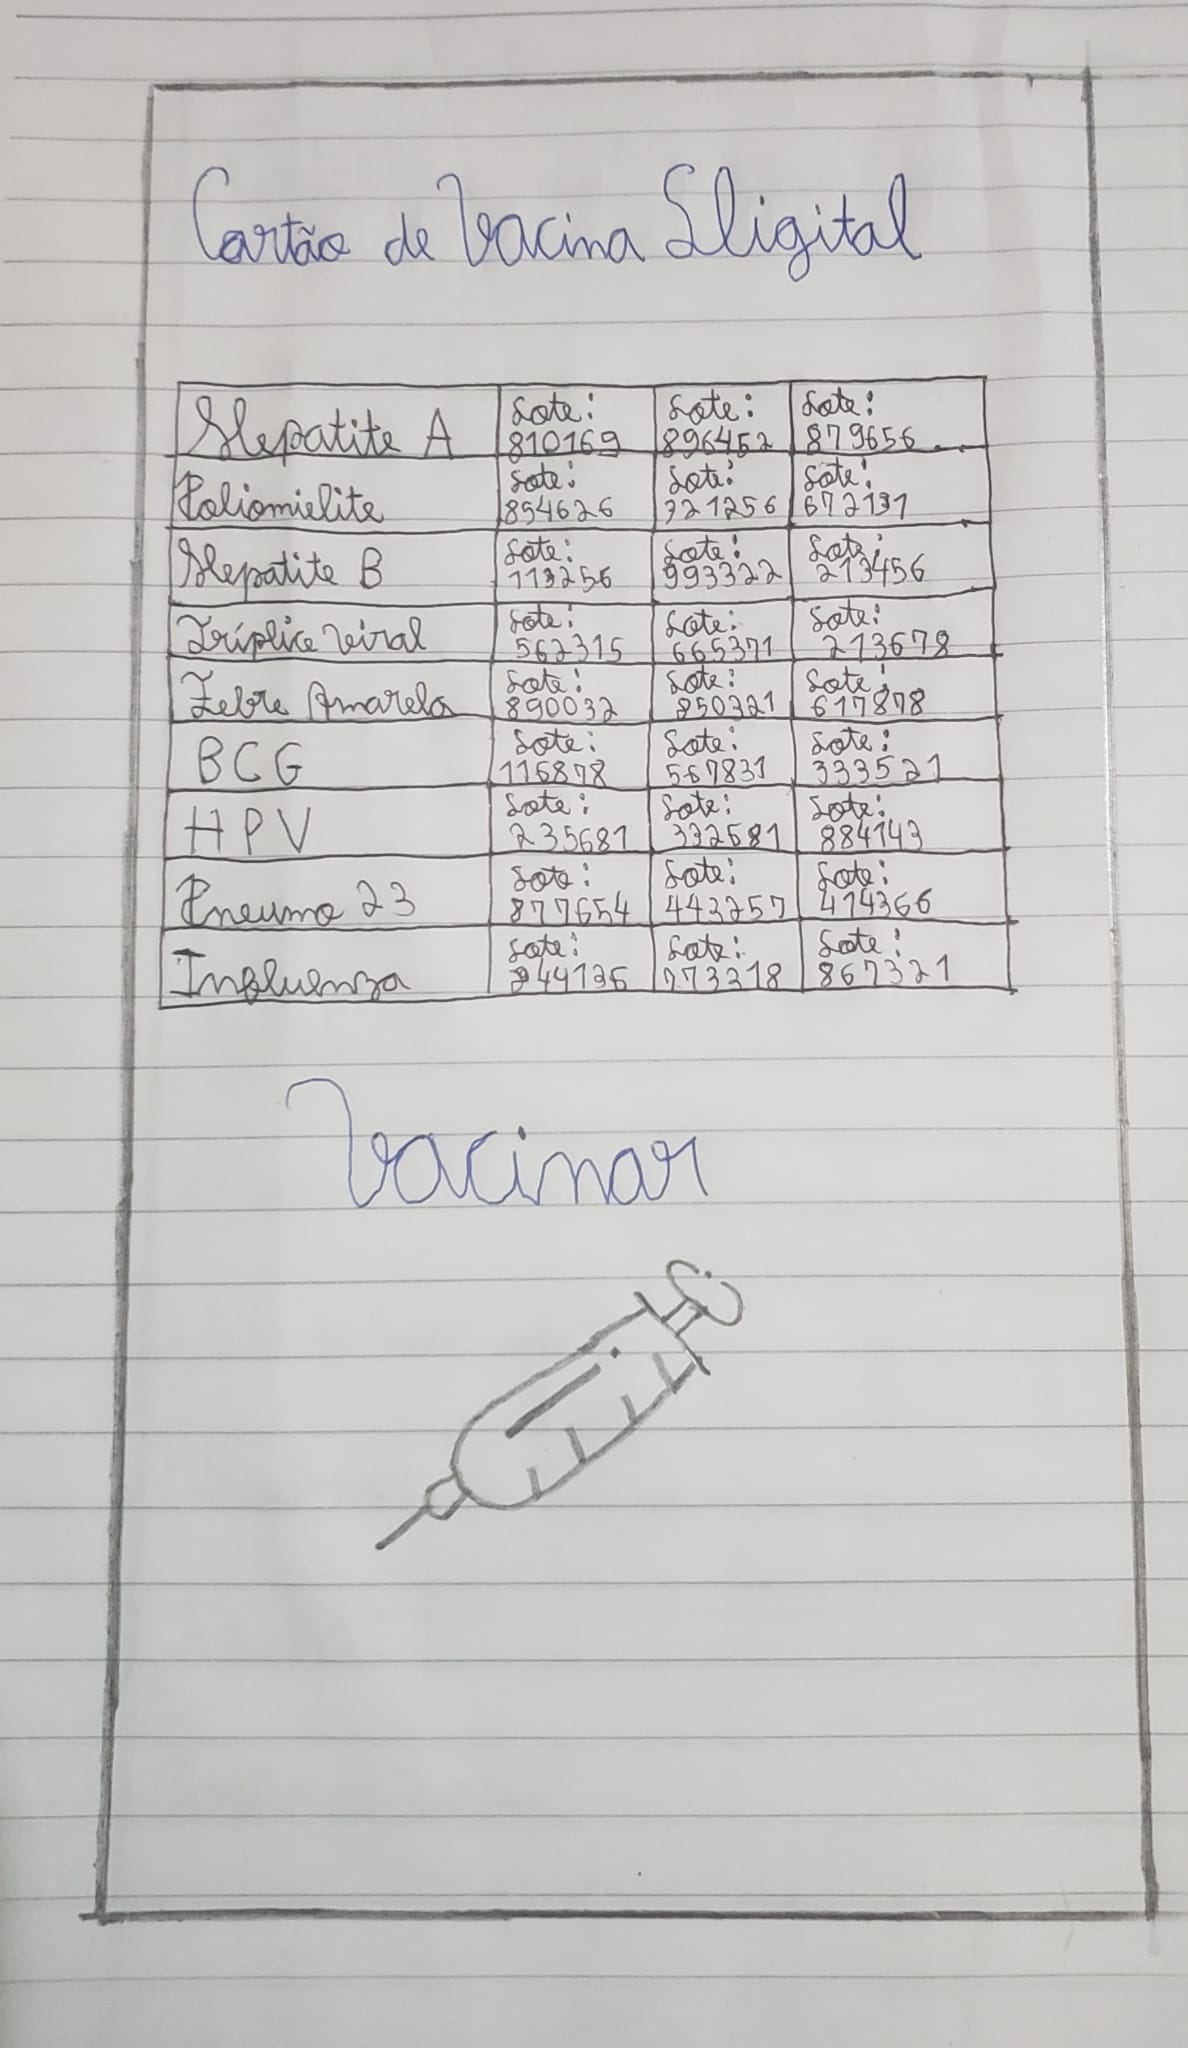 Cartão de Vacina Digital
Hepatite A Lote: 810169 Lote: 896452 Lote: 879656
Poliomielite Lote: 894626 Lote: 321256 Lote: 672131
Hepatite B Lote: 113256 Lote: 993322 Lote: 213456
Tríplice viral Lote: 562315 Lote: 665371 Lote: 213678
Febre Amarela Lote: 890032 Lote: 850321 Lote: 617878
BCG Lote: 116878 Lote: 567831 Lote: 333521
HPV Lote: 235681 Lote: 332581 Lote: 884143
Pneumo 23 Lote: 877654 Lote: 443257 Lote: 414366
Influenza Lote: Lote: 773218 Lote: 867321
Vacinar